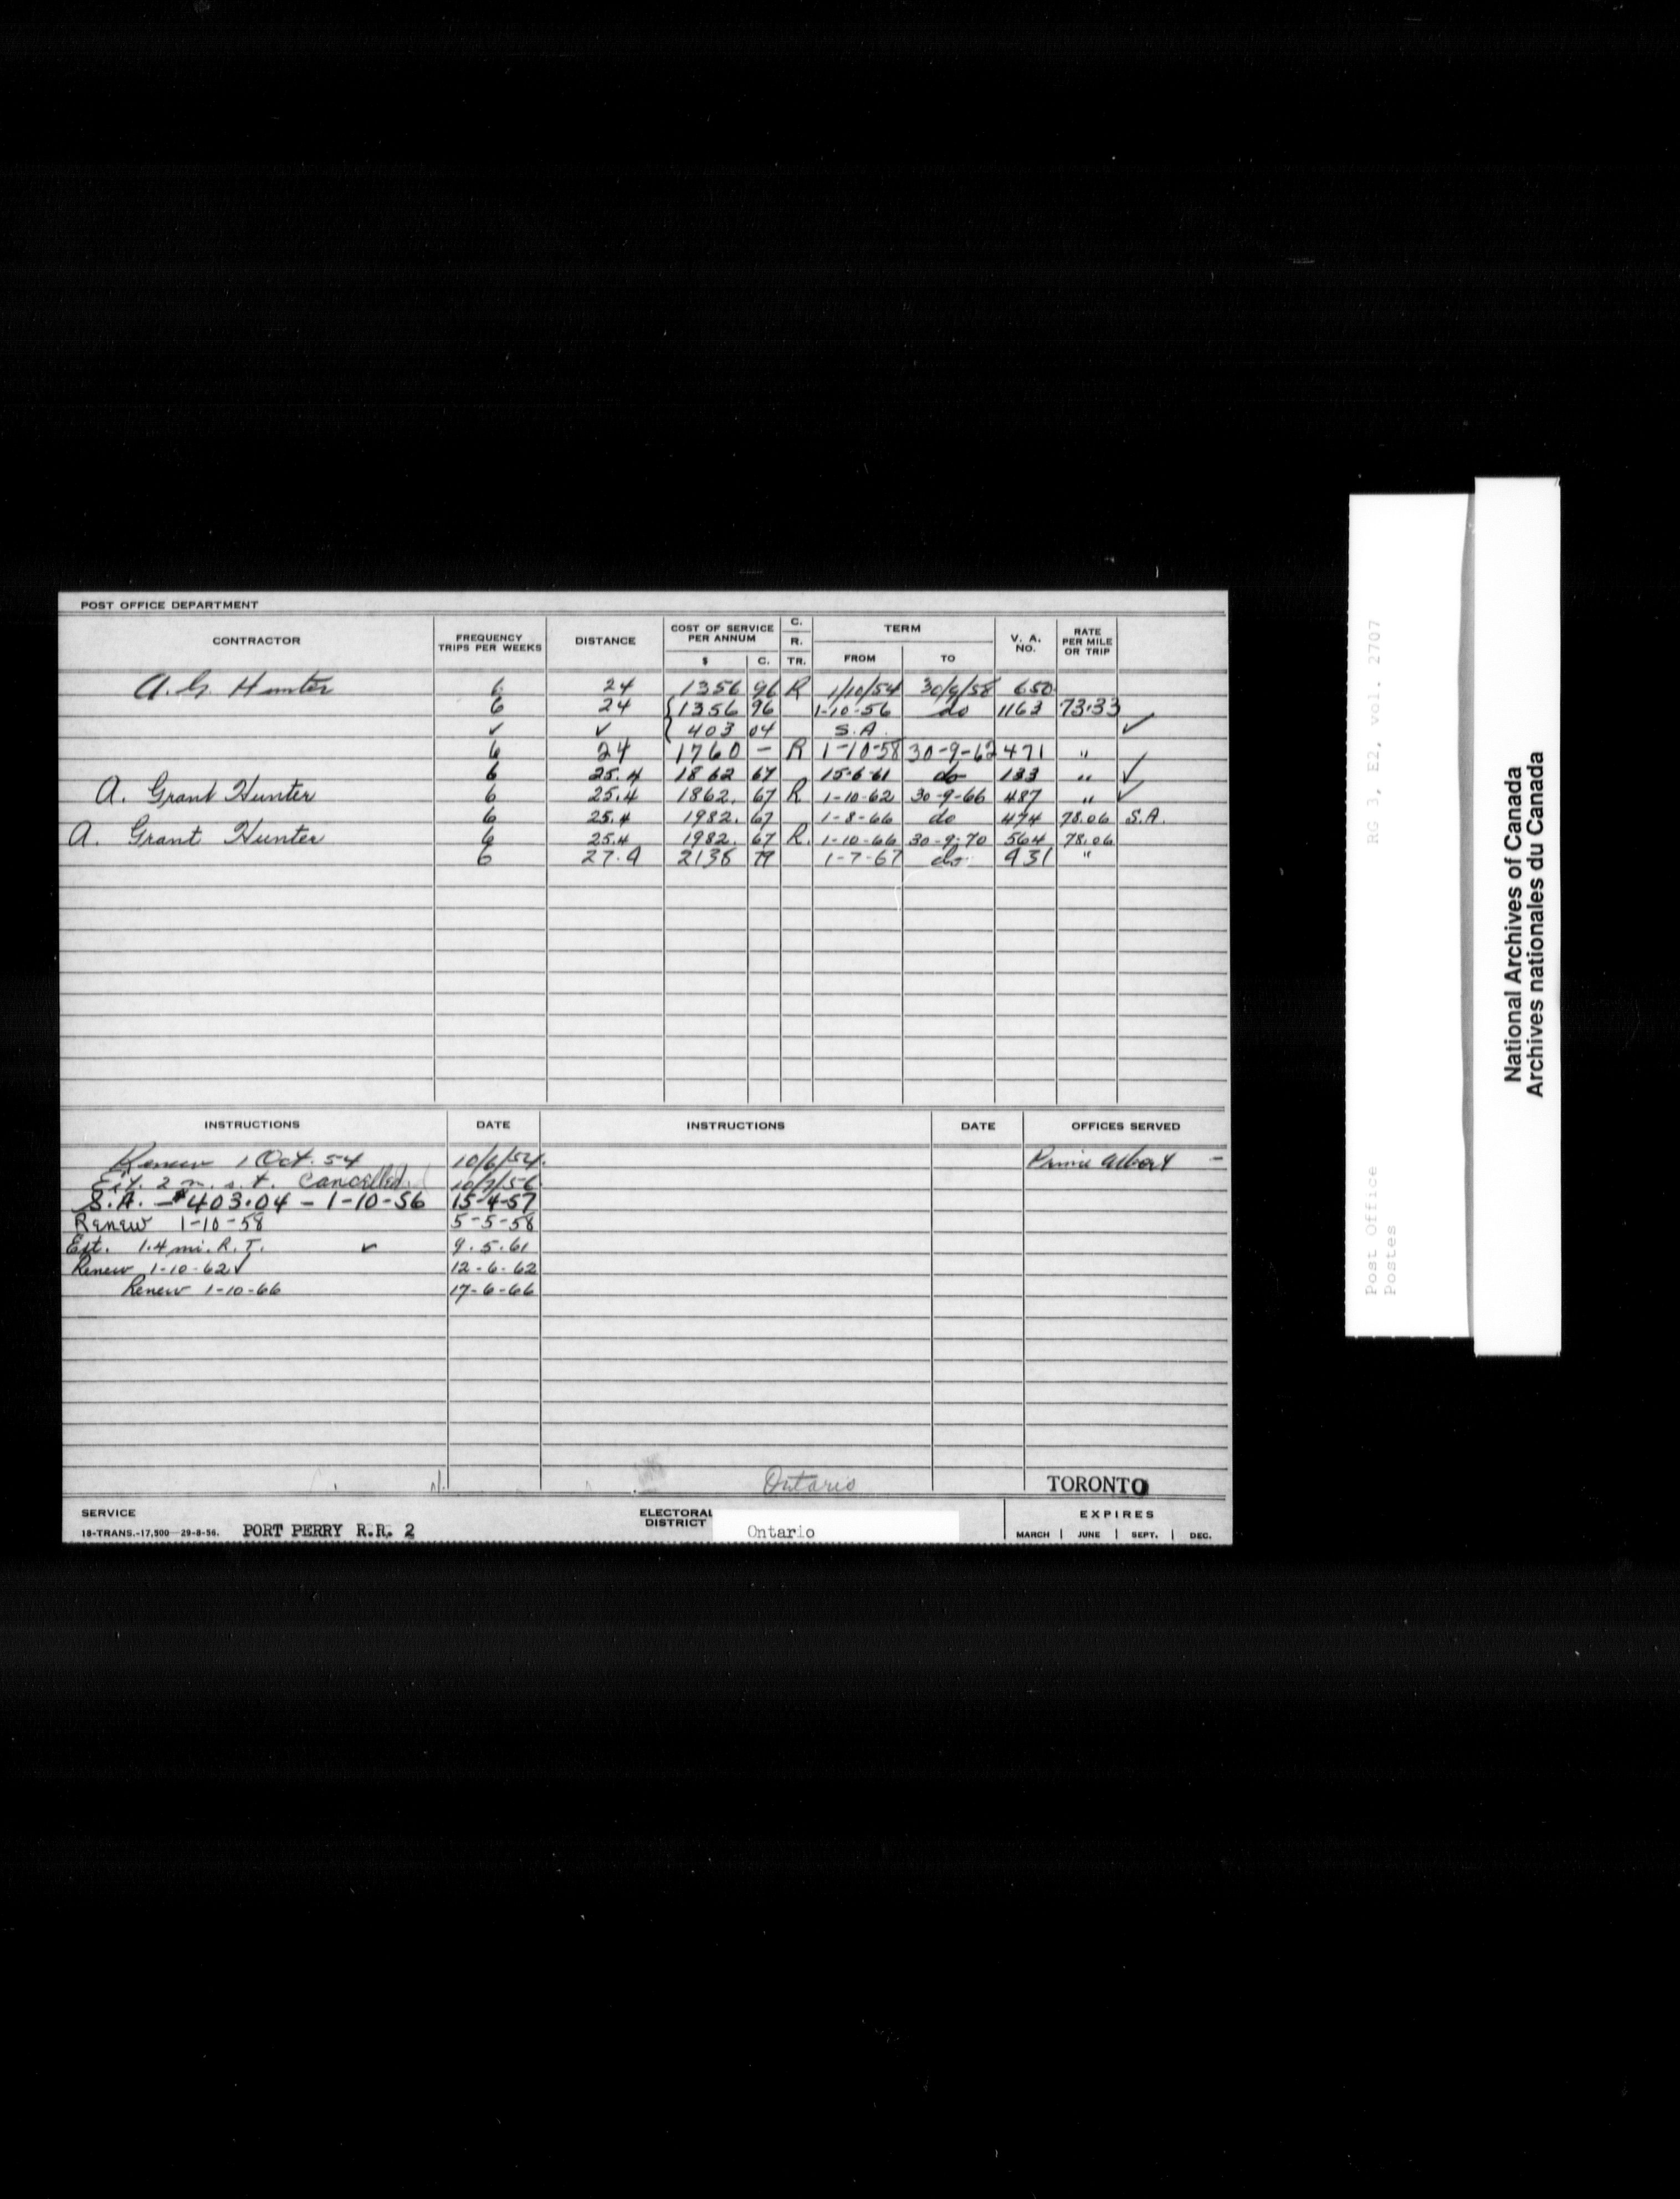 POST OFFICE DEPARTMENT
CONTRACTOR FREQUENCY TRIPS PER WEEKS DISTANCE COST OF SERVICE PER ANNUM $ C. C. R. TR. TERM FROM TO V. A. NO. RATE PER MILE OR TRIP
A. G. Hunter 6 24 1356 96 R 1/10/54 30/9/58 650
6 24 { 1356 96 1-10-56 do 1163 73.33
✓ ✓ { 403 04 S.A. ✓
6 24 1760 — R 1-10-58 30-9-62 471 "
6 25.4 1862 67 15-6-61 do 133 " ✓
A. Grant Hunter 6 25.4 1862. 67 R 1-10-62 30-9-66 487 " ✓
6 25.4 1982. 67 1-8-66 do 474 78.06 S.A.
A. Grant Hunter 6 25.4 1982. 67 R. 1-10-66 30-9-70 564 78.06
6 27.9 2138 79 1-7-67 do 931 "
INSTRUCTIONS DATE INSTRUCTIONS DATE OFFICES SERVED
Renew 1 Oct. 54 10/6/54. Prince Albert -
Ext. 2 m. s. t. Cancelled. 10/7/56
S.A. - $403.04 - 1-10-56 15-4-57
Renew 1-10-58 5-5-58
Ext. 1.4 mi. R.T. ✓ 9.5.61
Renew 1-10-62 ✓ 12-6-62
Renew 1-10-66 17-6-66
Ontario TORONTO
SERVICE
18-TRANS.-17,500—29-8-56. PORT PERRY R.R. 2
ELECTORAL DISTRICT Ontario
EXPIRES
MARCH | JUNE | SEPT. | DEC.
RG 3, E2, vol. 2707
Post Office
Postes
National Archives of Canada
Archives nationales du Canada